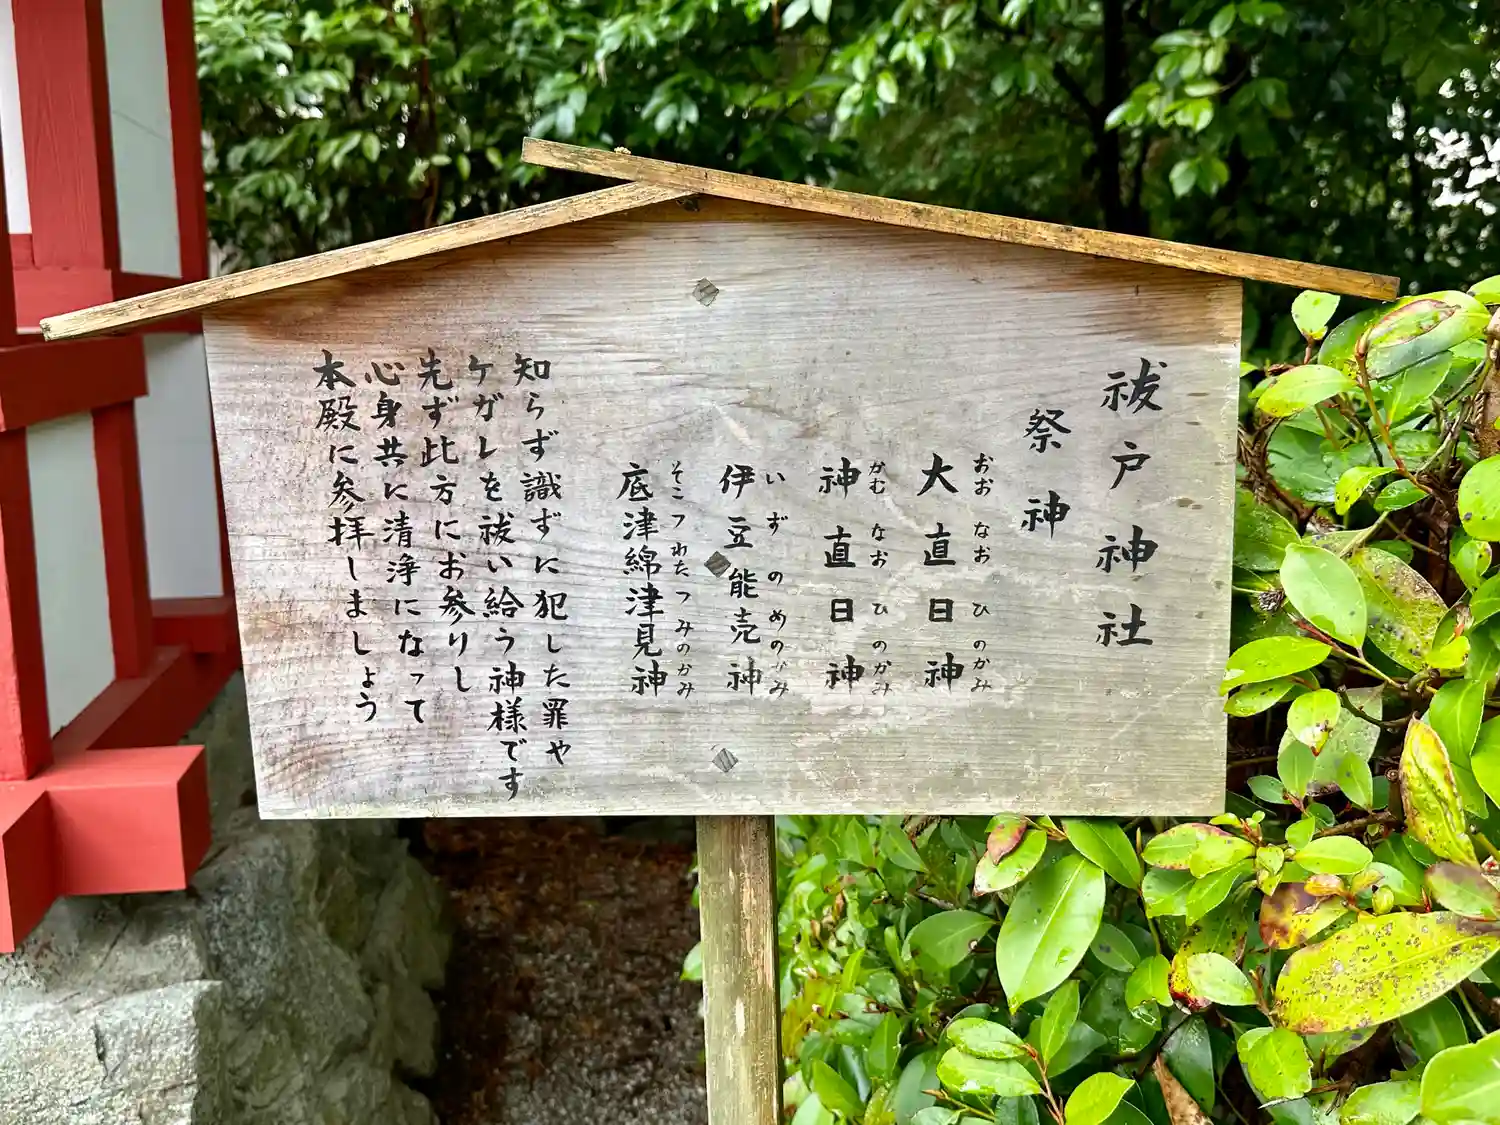 祓戸神社
祭神
大直日神
おおなおひのかみ
神直日神
かむなおひのかみ
伊豆能売神
いずのめのかみ
底津綿津見神
そこつわたつみのかみ
知らず識ずに犯した罪や
ケガレを祓い給う神様です
先ず此方にお参りし
心身共に清浄になって
本殿に参拝しましょう